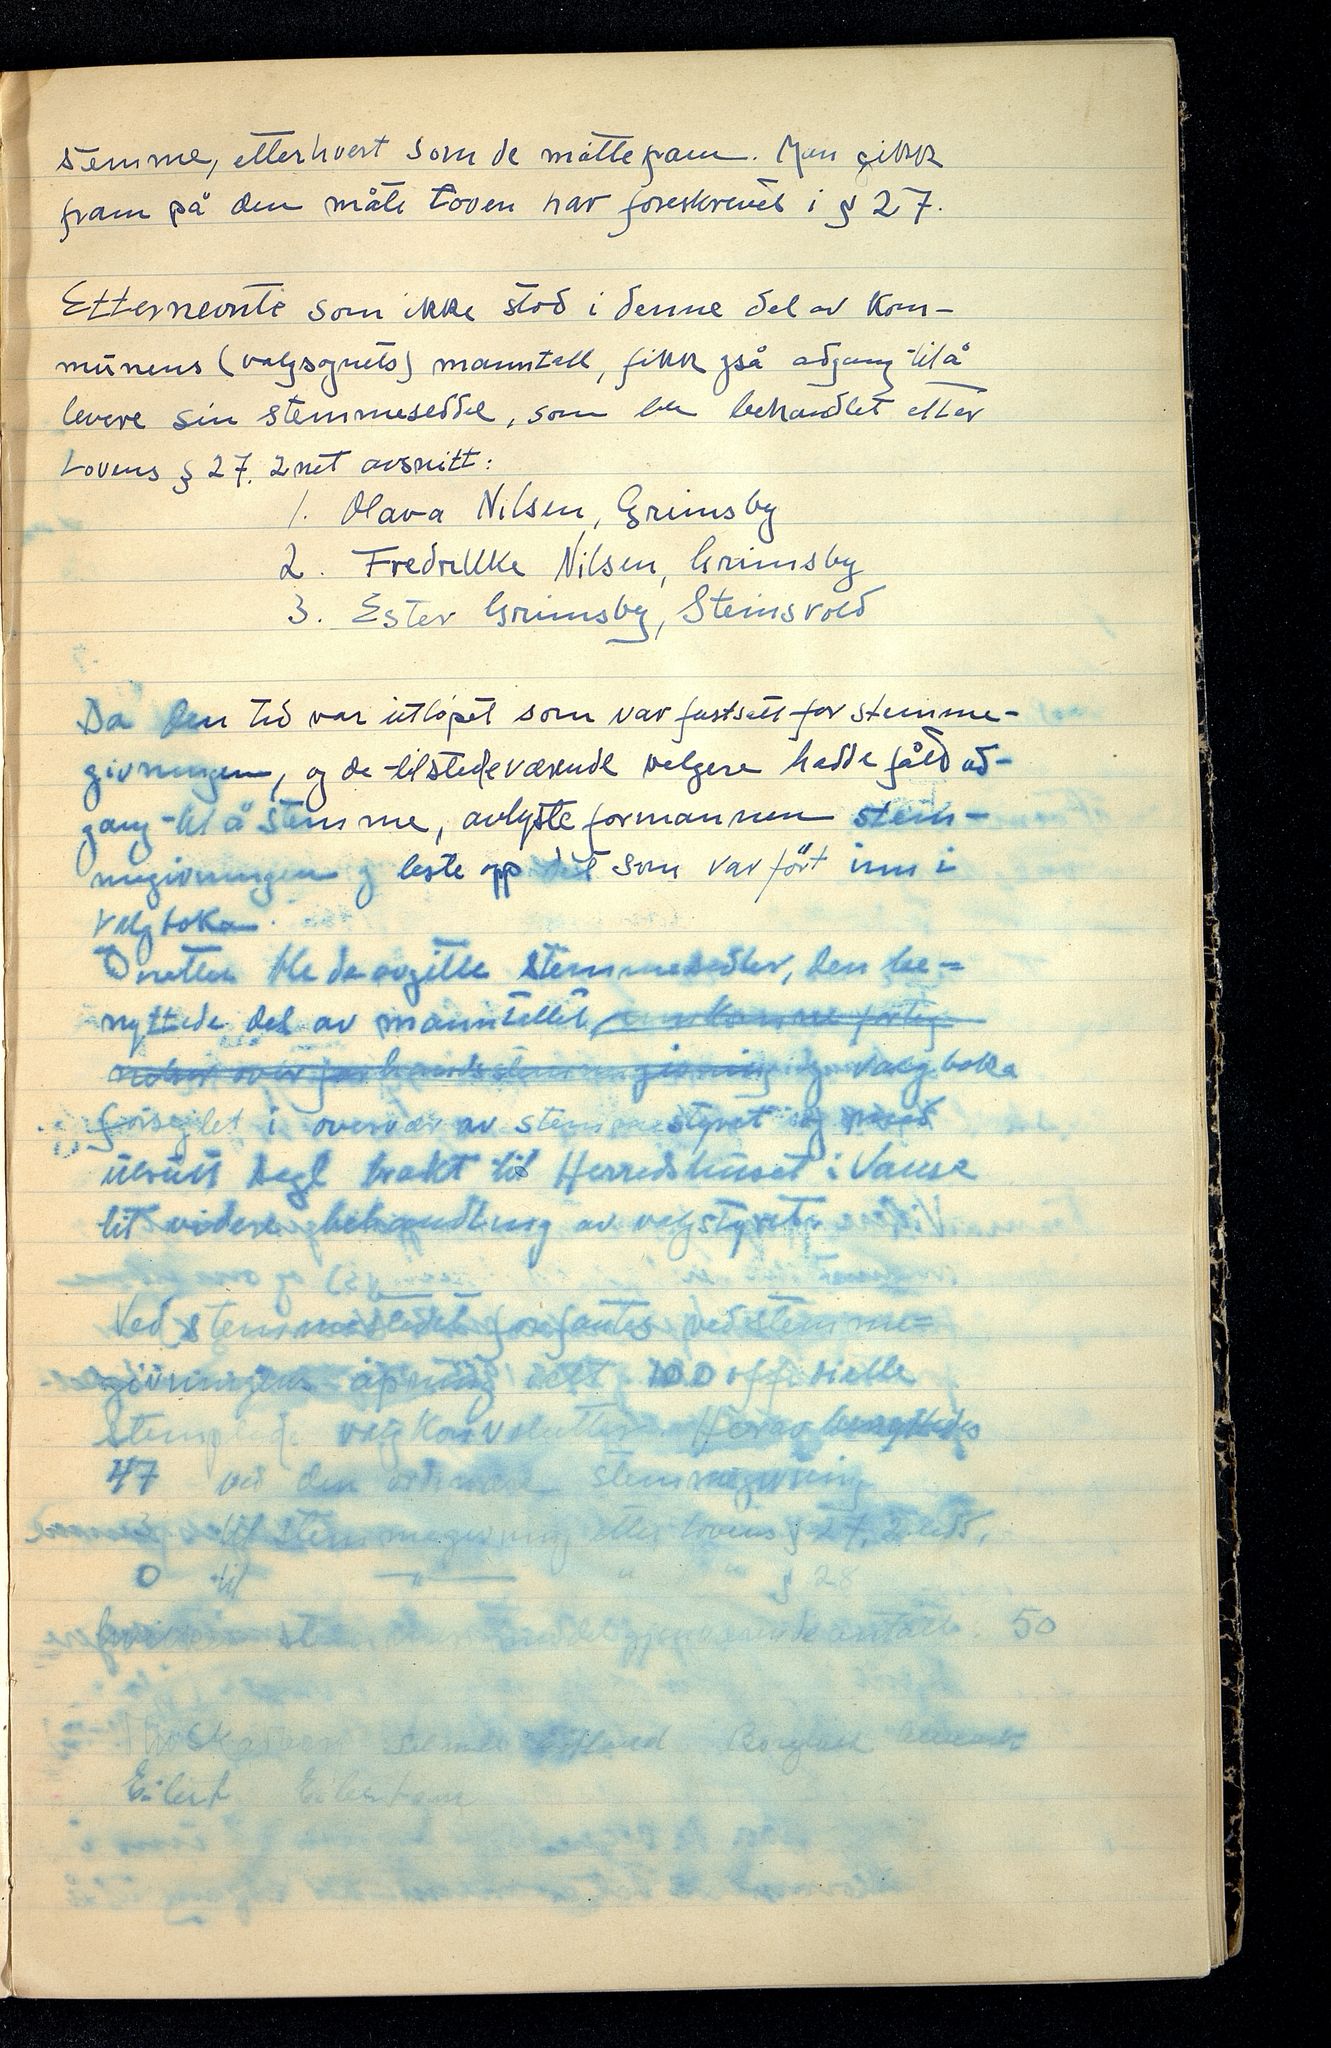 stemme, etterhvert som de møtte fram. Man gikk
fram på den måte loven har foreskrevet i § 27.
Etternevnte som ikke stod i denne del av kom-
munens (valgsognets) manntall, fikk også adgang til å
levere sin stemmeseddel, som ble behandlet etter
Lovens § 27. 2net avsnitt:
1. Olava Nilsen, Grimsby
2. Fredrikke Nilsen, Grimsby
3. Ester Grimsby, Steinsvold
Da den tid var utløpet som var fastsatt for stemme-
givningen, og de tilstedeværende velgere hadde fått ad-
gang til å stemme, avlyste formannen stem-
megivningen og leste opp det som var ført inn i
Valgboka.
Dretter ble de avgitte stemmesedler, den be-
nyttede del av manntallet
og valgboka
forseglet i overvær av stemmestyret og med
ubrutt segl brakt til Herredshuset i Vanse
til videre behandling av valgstyret.
Ved stemmestedet forefantes ved stemme-
givningens åpning i alt 100 offisielle
stemplede valgkonvolutter. Herav benyttedes
47 ved den ordinære stemmegivning
3 til stemmegivning etter lovens § 27, 2. ledd,
0 til —"— " " § 28
50
Eilert Eilertsen